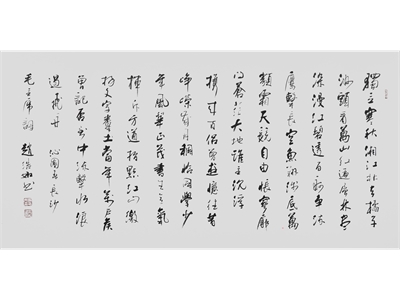 獨立寒秋湘江北去橘子
洲頭看萬山紅遍層林盡
染漫江碧透百舸爭流
鷹擊長空魚翔淺底萬
類霜天競自由悵寥廓
問蒼茫大地誰主沉浮
攜來百侶曾遊憶往昔
崢嶸歲月稠恰同學少
年風華正茂書生意氣
揮斥方遒指點江山激
揚文字糞土當年萬戶侯
曾記否到中流擊水浪
遏飛舟 沁園春長沙
毛主席詞 趙